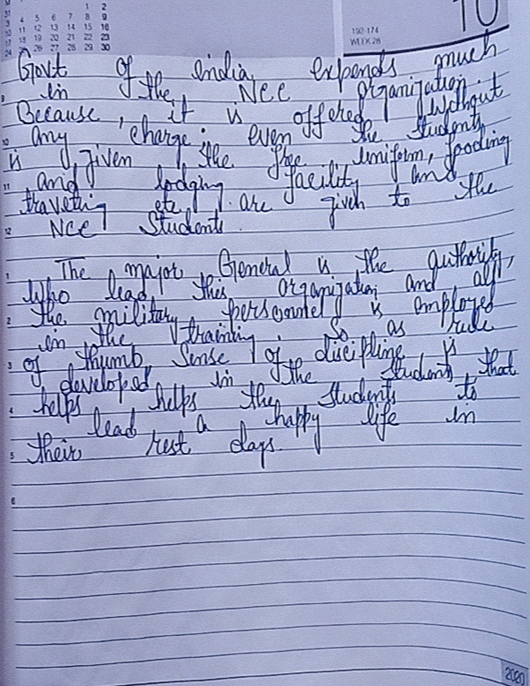 1 2
3 4 5 6 7 8 9
10 11 12 13 14 15 16
17 18 19 20 21 22 23
24 25 26 27 28 29 30
10
192-174
WEEK 28
Govt of the india expends much
in the NCC organization.
Because, it is offered without
any charge. even the students
is given the free uniform, fooding
and lodging facility and
traveting etc. are given to the
NCC Students.
The major General is the authority,
who lead this organization and all
the military personnel is employed
in the training. So as rule
of thumb sense of discipline is
developed in the students that
helps helps the students to
lead a happy life in
their rest days.
9
10
11
12
1
2
3
4
5
6
2020